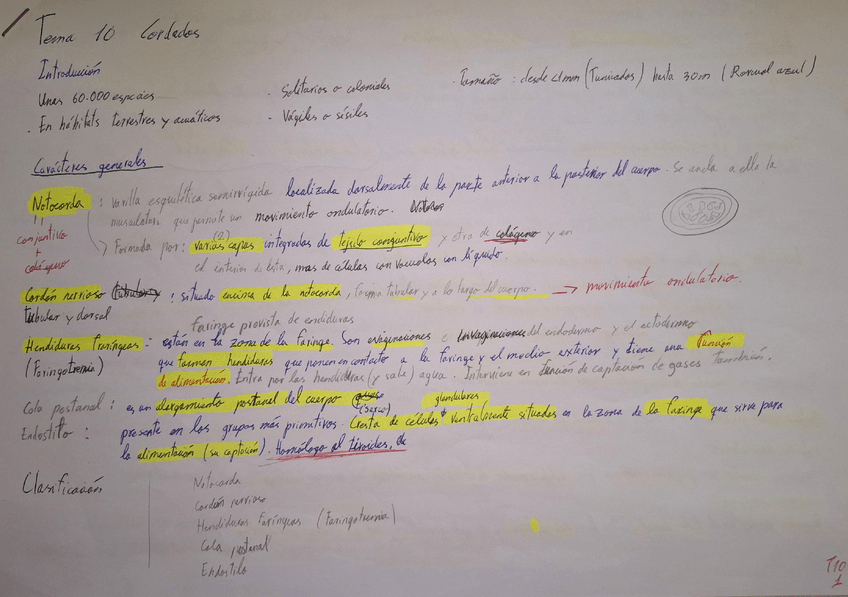 Tema 10 Cordados
Introducción
Unas 60.000 especies
. En hábitats terrestres y acuáticos
. Solitarios o coloniales
. Vágiles o sésiles
. Tamaño : desde <1mm (Tunicados) hasta 30m (Rorcual azul)
Carácteres generales
Notocorda : Varilla esquelética semirrígida localizada dorsalmente de la parte anterior a la posterior del cuerpo. Se ancla a ella la
musculatura que permite un movimiento ondulatorio.
conjuntivo
+
colágeno
Formada por : varias capas (2) integradas de tejido conjuntivo y otra de colágeno y en
el interior de ésta, mas de células con vacuolas con líquido.
Cordón nervioso (tubular) : situado encima de la notocorda, forma tubular y a lo largo del cuerpo. → movimiento ondulatorio.
tubular y dorsal
Faringe provista de endiduras
Hendiduras faríngeas : están en la zona de la faringe. Son evaginaciones e invaginaciones del endodermo y el ectodermo
(Faringotremia) que forman hendiduras que ponen en contacto a la faringe y el medio exterior y tiene una función
de alimentación. Entra por las hendiduras (y sale) agua. Interviene en función de captación de gases también.
Cola postanal : es un alargamiento postanal del cuerpo
Endostilo : presente en los grupos más primitivos. Cresta de células glandulares ventralmente situadas en la zona de la faringe que sirve para
la alimentación (su captación). Homólogo al tiroides, de
Clasificación
Notocorda
Cordón nervioso
Hendiduras Faríngeas (Faringotremia)
Cola postanal
Endostilo
T10
1